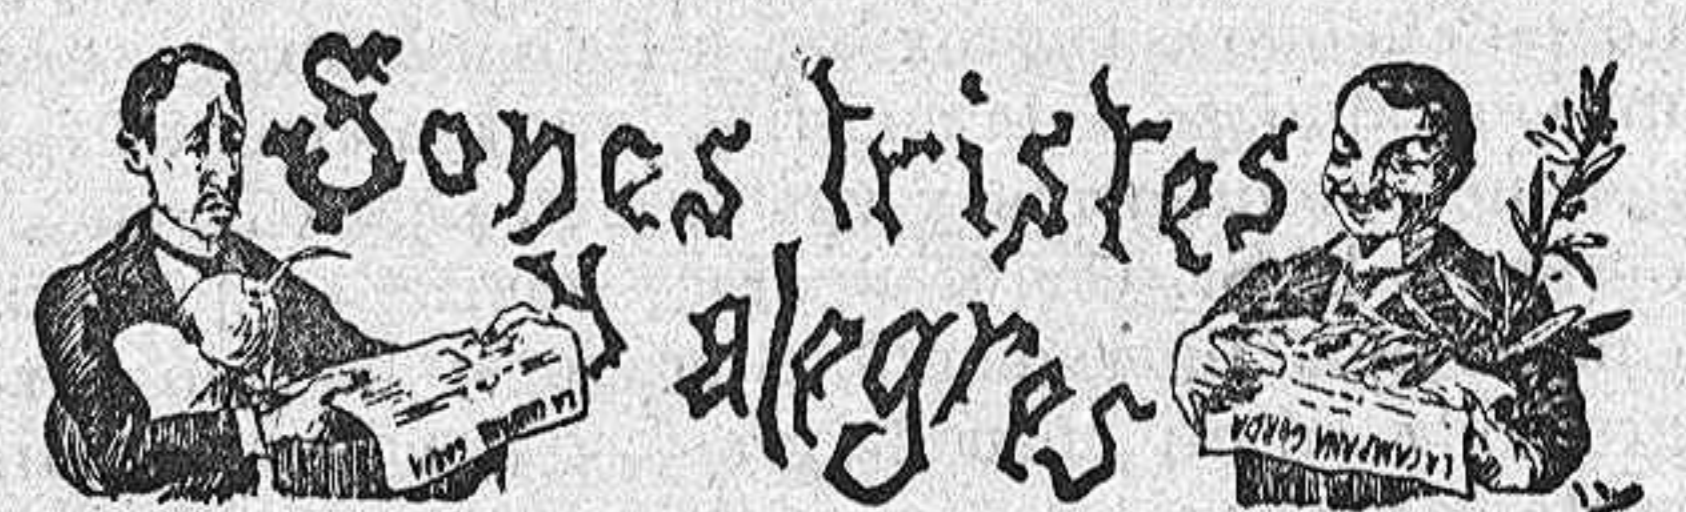 Sones tristes
y alegres
LA CAMPANA GORDA
LA CAMPANA GORDA